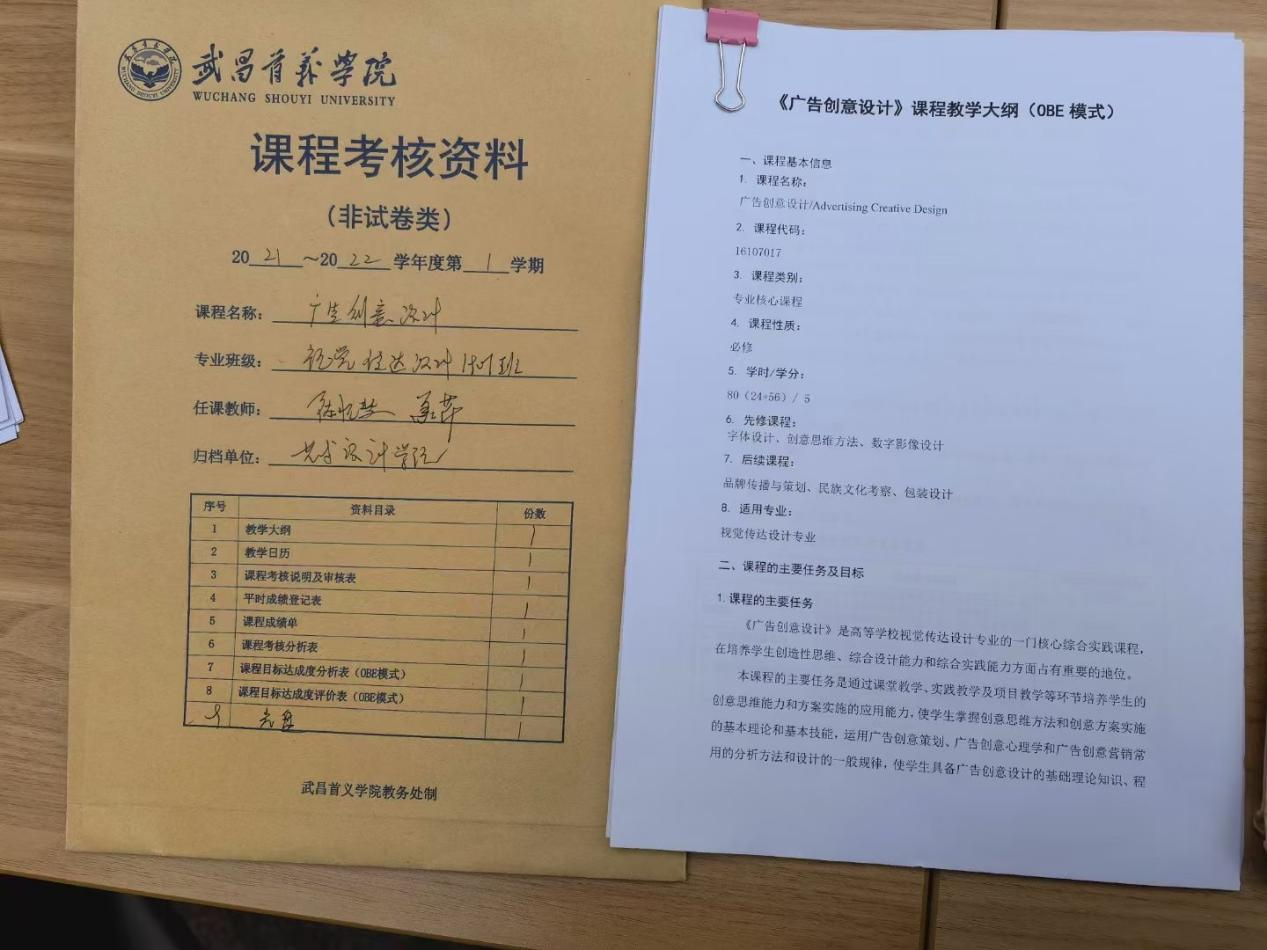 武昌首义学院
WUCHANG SHOUYI UNIVERSITY
课程考核资料
（非试卷类）
2021～2022学年度第1学期
课程名称：广告创意设计
专业班级：视觉传达设计 班
任课教师：
归档单位：艺术设计学院
序号 资料目录 份数
1 教学大纲 1
2 教学日历 1
3 课程考核说明及审核表 1
4 平时成绩登记表 1
5 课程成绩单 1
6 课程考核分析表 1
7 课程目标达成度分析表（OBE模式） 1
8 课程目标达成度评价表（OBE模式） 1
9 光盘 1
武昌首义学院教务处制
《广告创意设计》课程教学大纲（OBE 模式）
一、课程基本信息
1. 课程名称：
广告创意设计/Advertising Creative Design
2. 课程代码：
16107017
3. 课程类别：
专业核心课程
4. 课程性质：
必修
5. 学时/学分：
80（24+56）/ 5
6. 先修课程：
字体设计、创意思维方法、数字影像设计
7. 后续课程：
品牌传播与策划、民族文化考察、包装设计
8. 适用专业：
视觉传达设计专业
二、课程的主要任务及目标
1.课程的主要任务
《广告创意设计》是高等学校视觉传达设计专业的一门核心综合实践课程，
在培养学生创造性思维、综合设计能力和综合实践能力方面占有重要的地位。
本课程的主要任务是通过课堂教学、实践教学及项目教学等环节培养学生的
创意思维能力和方案实施的应用能力，使学生掌握创意思维方法和创意方案实施
的基本理论和基本技能，运用广告创意策划、广告创意心理学和广告创意营销常
用的分析方法和设计的一般规律，使学生具备广告创意设计的基础理论知识、程